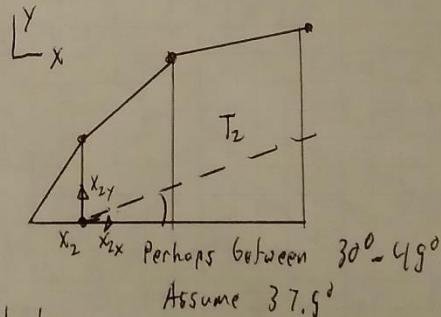 Y
X
T₂
X₂y
X₂ X₂x
Perhaps between 30° - 49°
Assume 37.9°